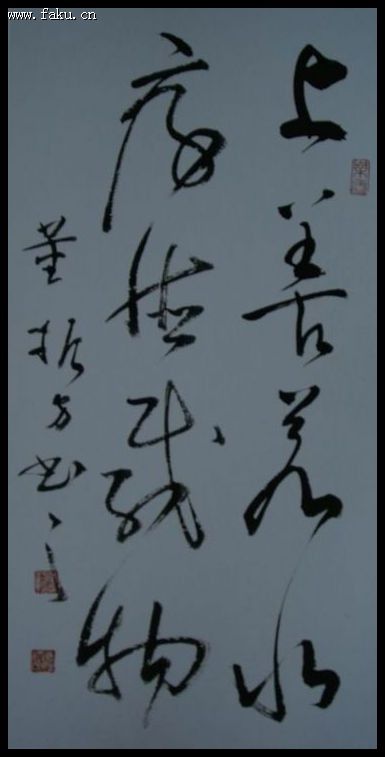 www.faku.cn
上善若水
厚德载物
董振方书之